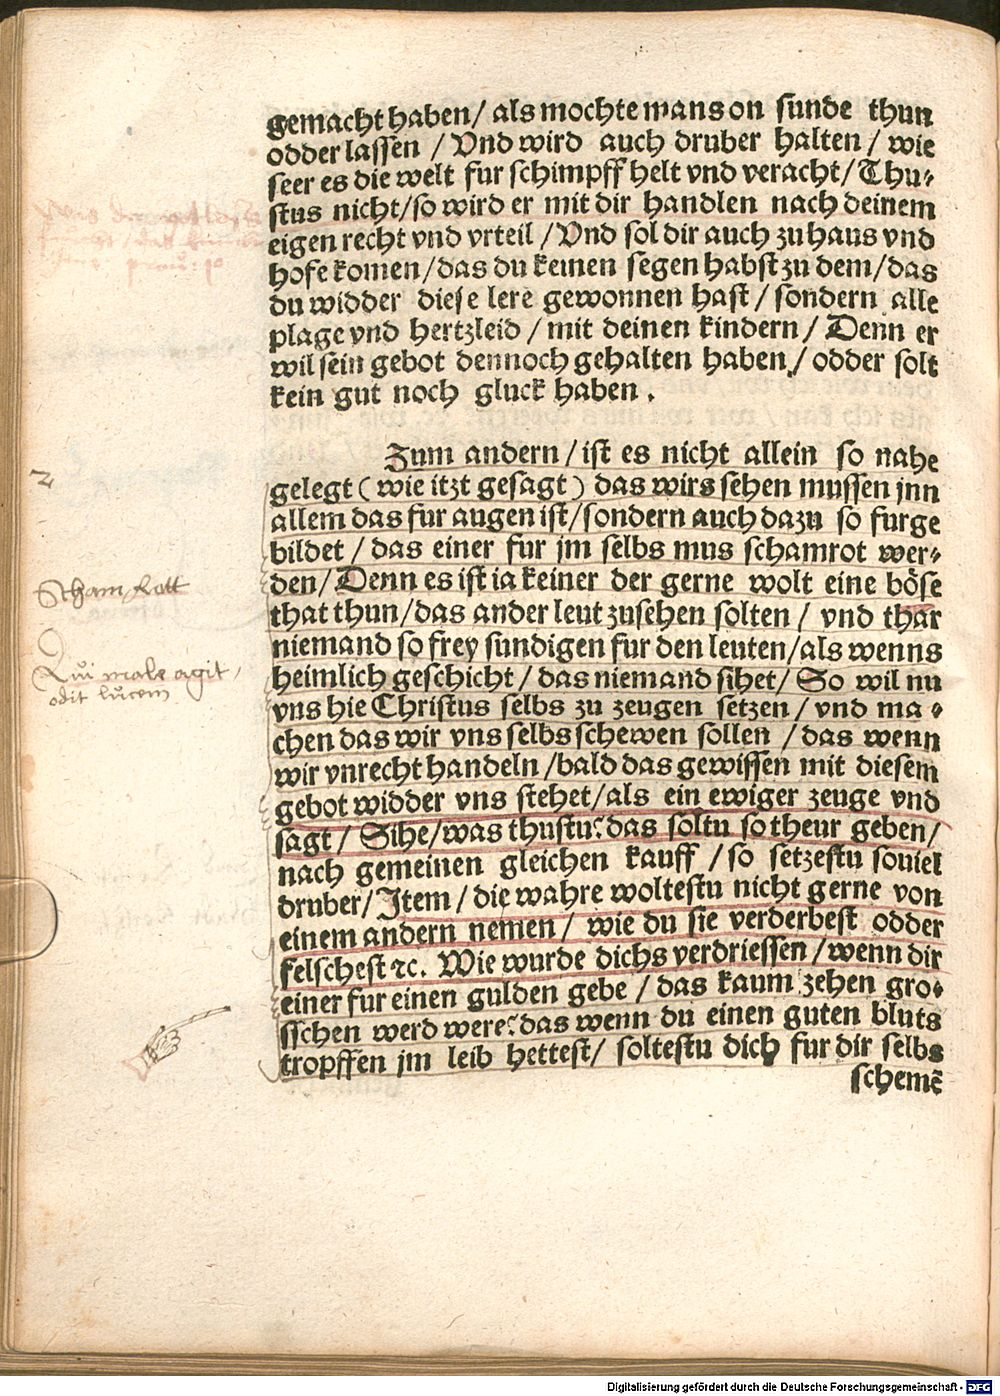 gemacht haben/ als mochte mans on sunde thun
odder lassen / Vnd wird auch druber halten / wie
seer es die welt fur schimpff helt vnd veracht/ Thu⸗
stus nicht/so wird er mit dir handlen nach deinem
eigen recht vnd vrteil /Vnd sol dir auch zu haus vnd
hofe komen/das du keinen segen habst zu dem/das
du widder diese lere gewonnen hast / sondern alle
plage vnd hertzleid / mit deinen kindern/ Denn er
wil sein gebot dennoch gehalten haben/ odder solt
kein gut noch gluck haben.
Zum andern/ ist es nicht allein so nahe
gelegt ( wie itzt gesagt ) das wirs sehen mussen jnn
allem das fur augen ist/sondern auch dazu so furge
bildet / das einer fur jm selbs mus schamrot wer⸗
den/ Denn es ist ia keiner der gerne wolt eine böse
that thun/das ander leut zusehen solten / vnd thar
niemand so frey sundigen fur den leuten/als wenns
heimlich geschicht / das niemand sihet/ So wil nu
vns hie Christus selbs zu zeugen setzen/ vnd ma⸗
chen das wir vns selbs schewen sollen / das wenn
wir vnrecht handeln /bald das gewissen mit diesem
gebot widder vns stehet/als ein ewiger zeuge vnd
sagt/ Sihe/was thustu? das soltu so theur geben/
nach gemeinen gleichen kauff / so setzestu souiel
druber/ Jtem / die wahre woltestu nicht gerne von
einem andern nemen/ wie du sie verderbest odder
felschest ⁊c. Wie wurde dichs verdriessen /wenn dir
einer fur einen gulden gebe / das kaum zehen gro⸗
sschen werd were? das wenn du einen guten bluts
tropffen jm leib hettest/ soltestu dich fur dir selbs
schemē
2
Scham Rott
Qui male agit,
odit lucem
Digitalisierung gefördert durch die Deutsche Forschungsgemeinschaft - DFG